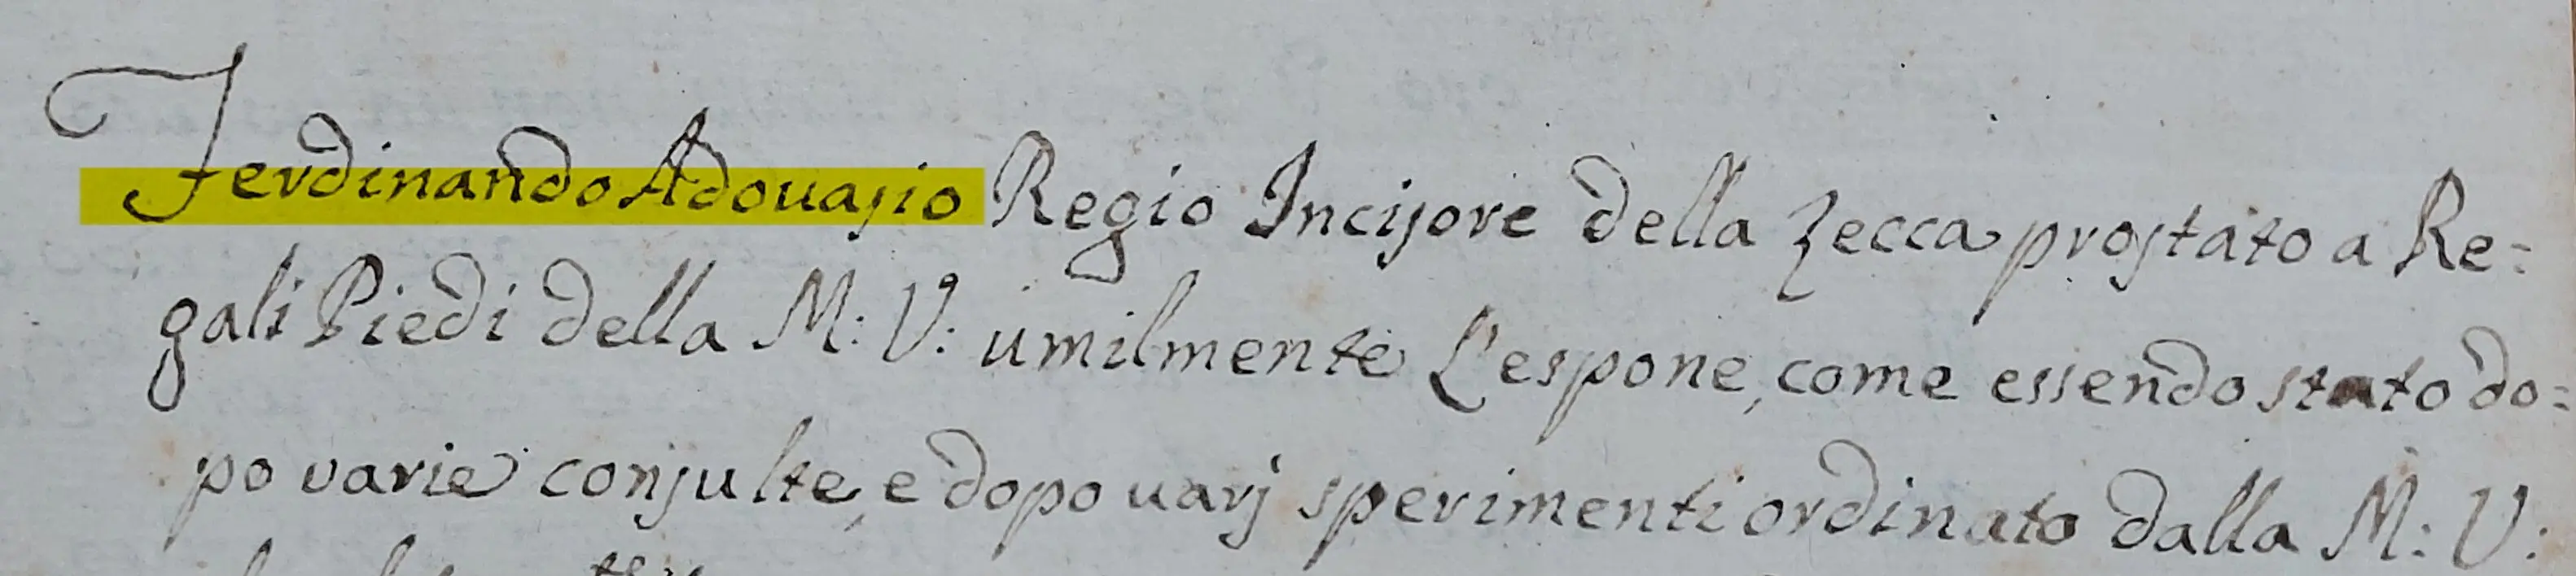 Ferdinando Adouasio Regio Incisore della Zecca prostato a Re=
gali Piedi della M: V: umilmente L'espone, come essendo stato do=
po varie consulte, e dopo uarj sperimenti ordinato dalla M: V: